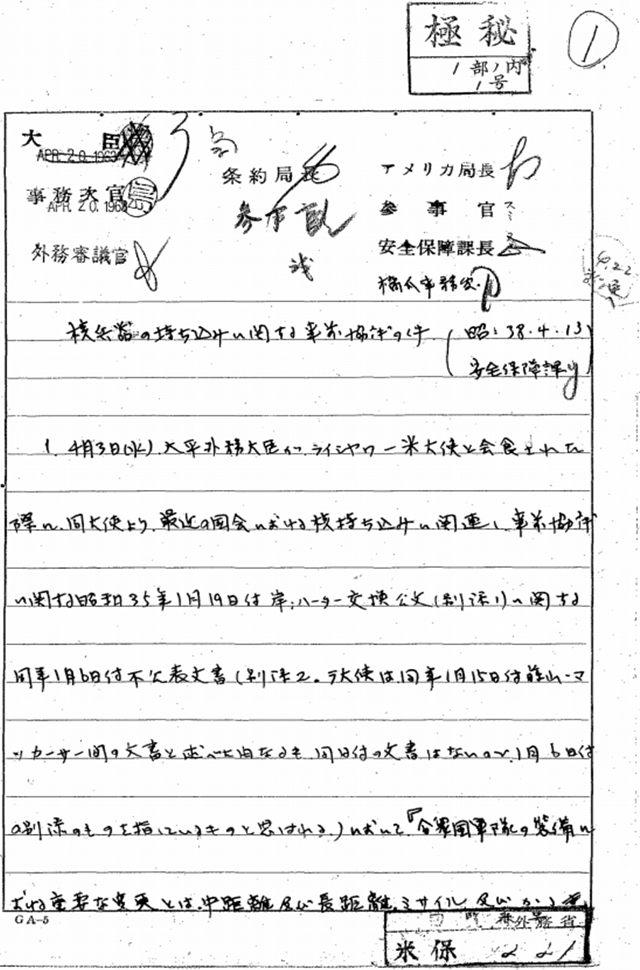 極秘
1部ノ内
1号
1
大臣
APR 20 1963
事務次官
APR 20.1963
外務審議官
条約局長
参事官
アメリカ局長
参事官
安全保障課長
4.22
核兵器の持ち込みに関する事前協議の件
(昭:38.4.13)
安全保障課
1. 4月3日(水)、大平外務大臣がライシャワー米大使と会食された
際に、同大使より、最近の国会における核持ち込みに関連し、事前協議
に関する昭和35年1月19日付岸・ハーター交換公文(別添1)に関する
同年1月6日付不公表文書(別添2。ラ大使は、同年1月15日付藤山−マ
ッカーサー間の文書と述べた由なるも、同日付の文書はないので、1月6日付
の別添のものを指しているものと思はれる。)において『合衆国軍隊の装備に
おける重要な変更とは、中距離及び長距離ミサイル及びかゝる
GA-5
外務省
米保 221